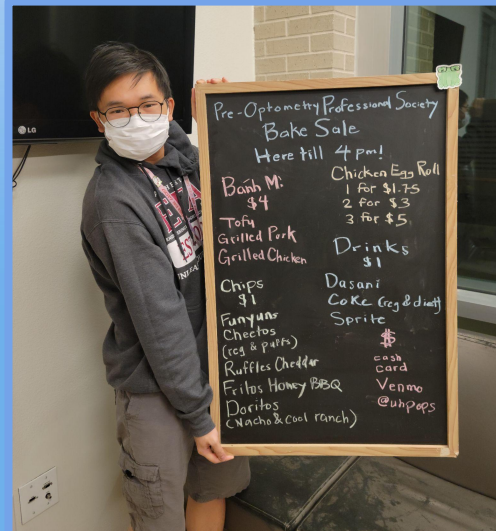 LG
Pre-Optometry Professional Society
Bake Sale
Here till 4 pm!
Bánh Mì
$4
Tofu
Grilled Pork
Grilled Chicken
Chips
$1
Funyuns
Cheetos
(reg & puffs)
Ruffles Cheddar
Fritos Honey BBQ
Doritos
(Nacho & cool ranch)
Chicken Egg Roll
1 for $1.75
2 for $3
3 for $5
Drinks
$1
Dasani
Coke (reg & diet)
Sprite
$
cash
card
Venmo
@uhpops